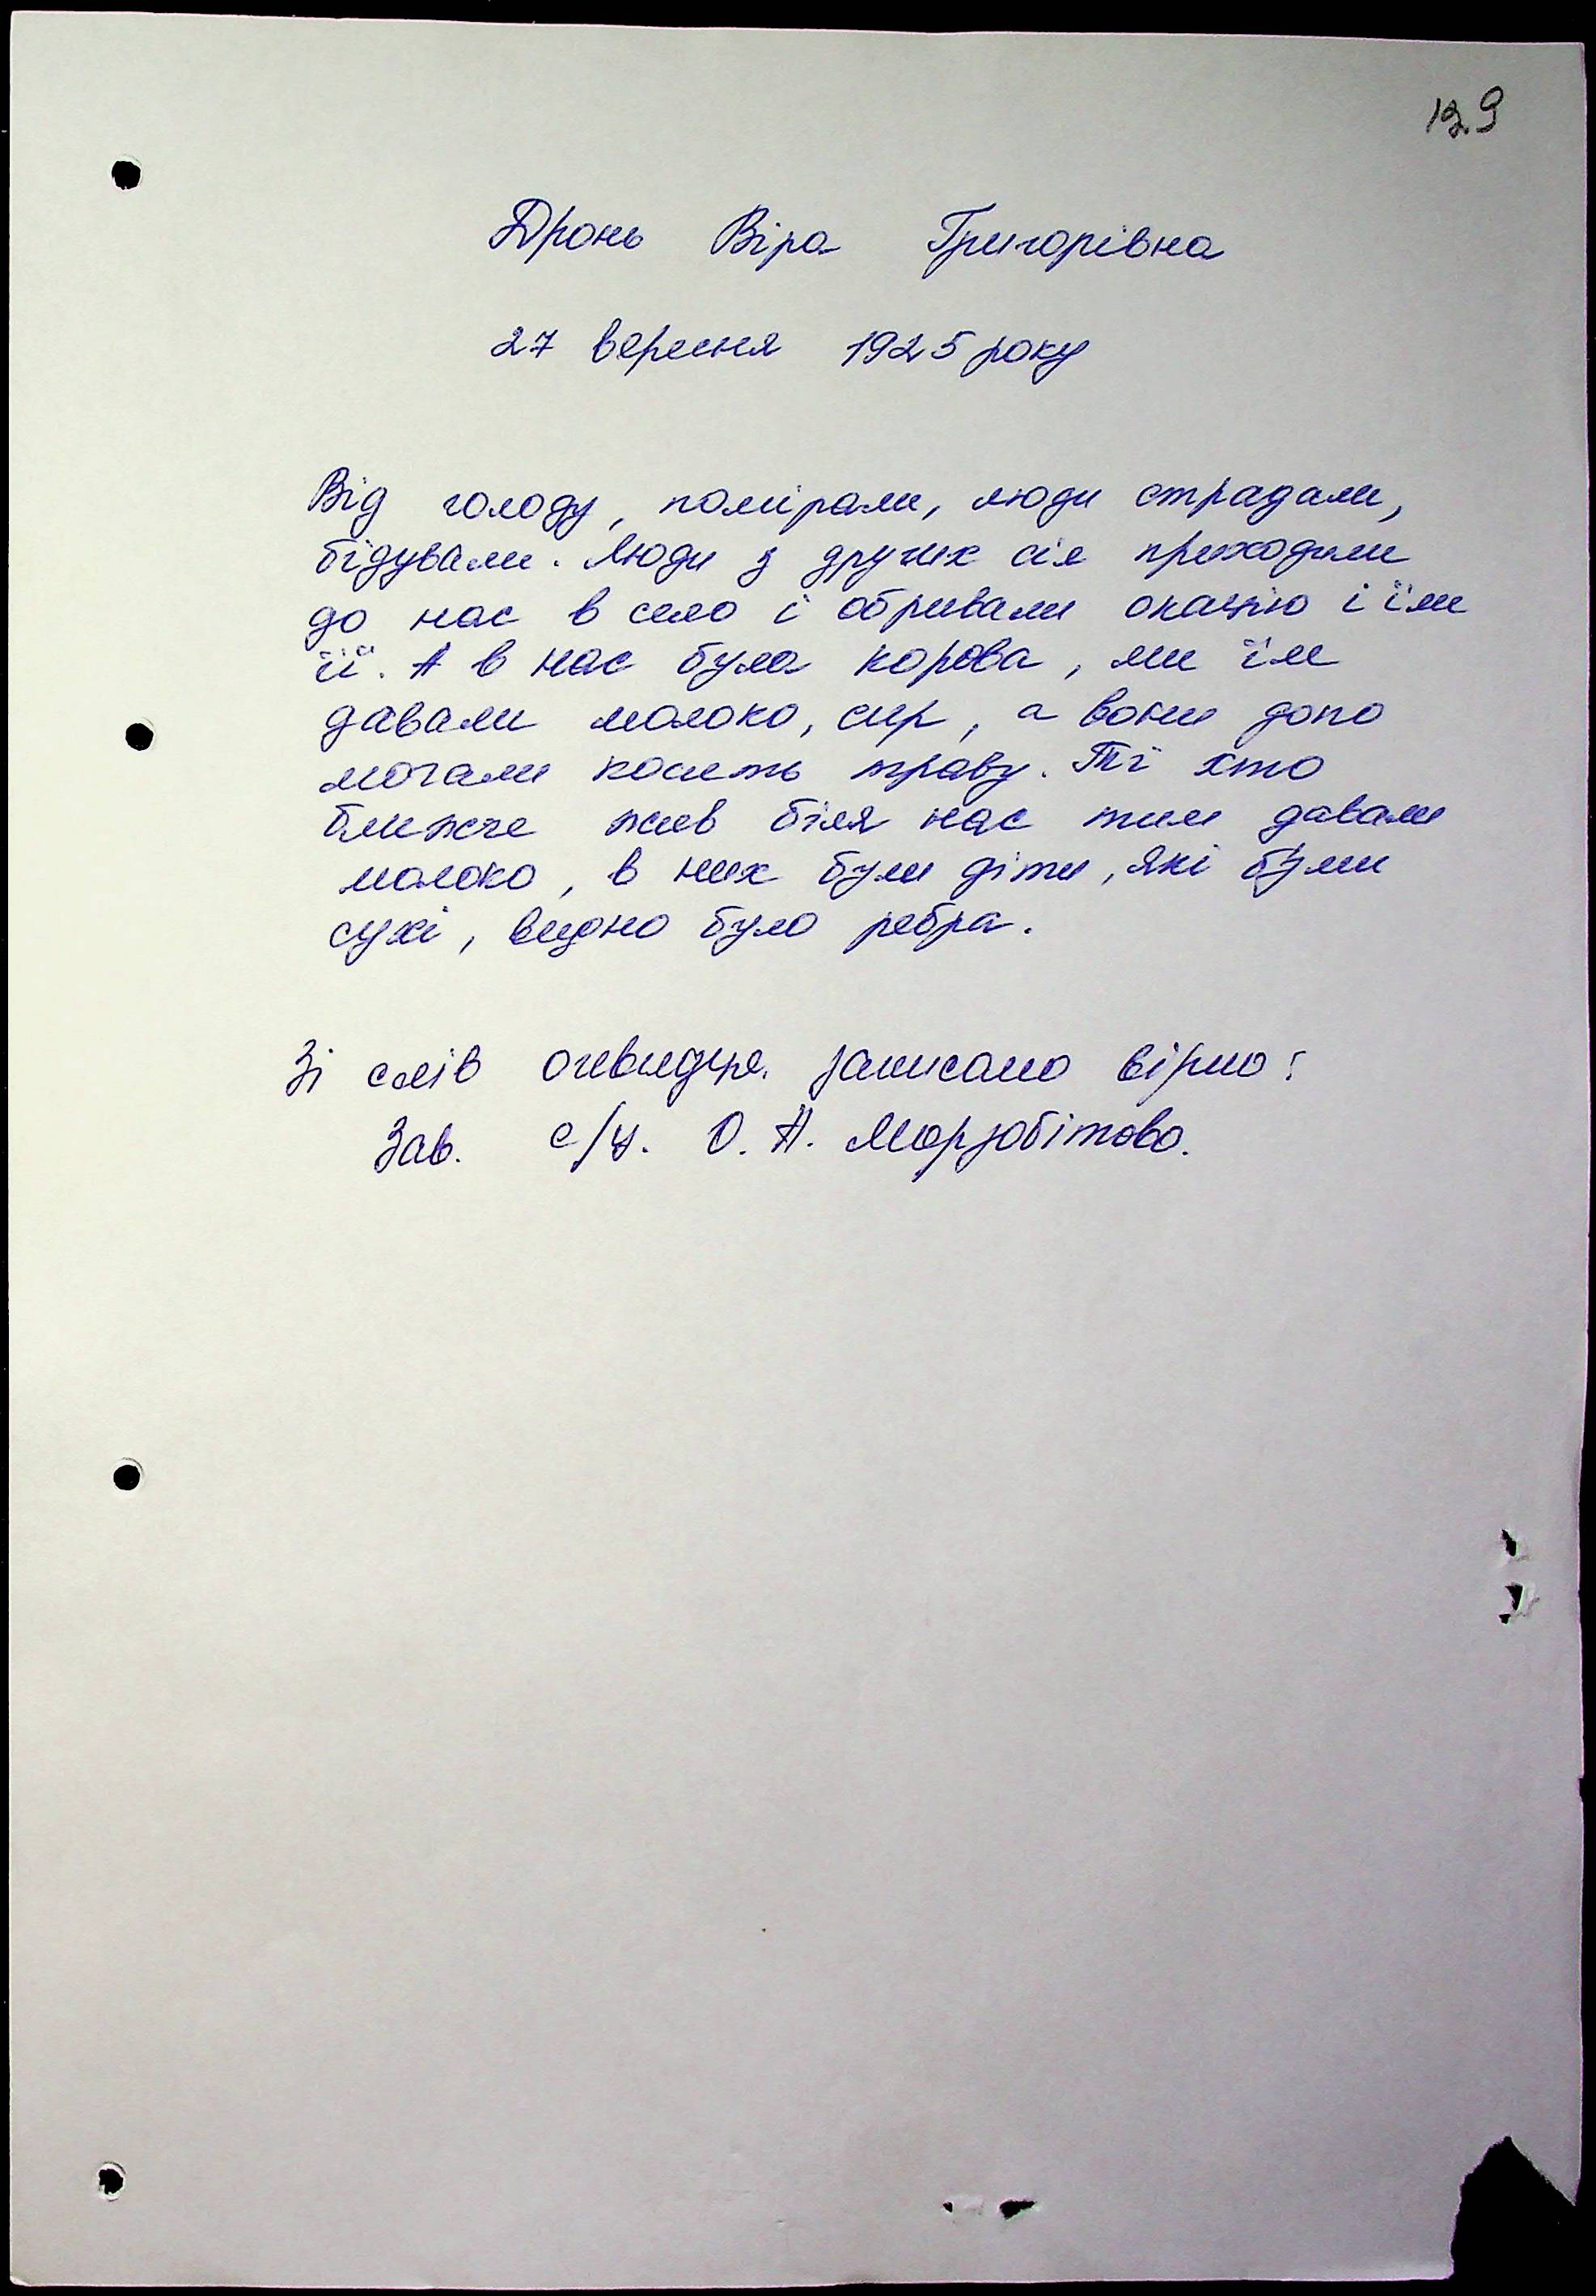 129
Дронь Віра Григорівна
27 вересня 1925 року
Від голоду, помірали, люди страдали,
бідували. Люди з других сіл приходили
до нас в село і обривали окацію і їли
її. А в нас була корова, ми їм
давали молоко, сир, а вони допо
могали косить траву. Ті хто
ближче жив біля нас тим давали
молоко, в них були діти, які були
сухі, видно було ребра.
Зі слів очевидця записано вірно:
Зав. с/к. О. А. Марзабітова.